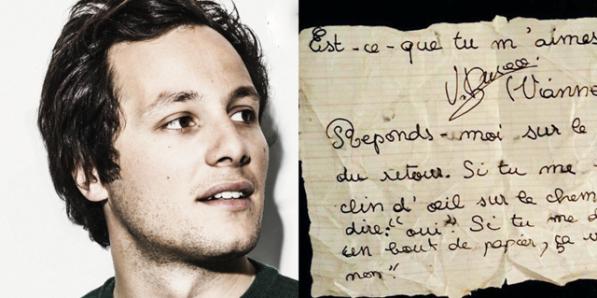 Est-ce-que tu m'aimes
(Vianne
Reponds-moi sur le
du retour. Si tu me
clin d'œil sur le chem
dire: "oui" Si tu me d
un bout de papier, ça v
non"